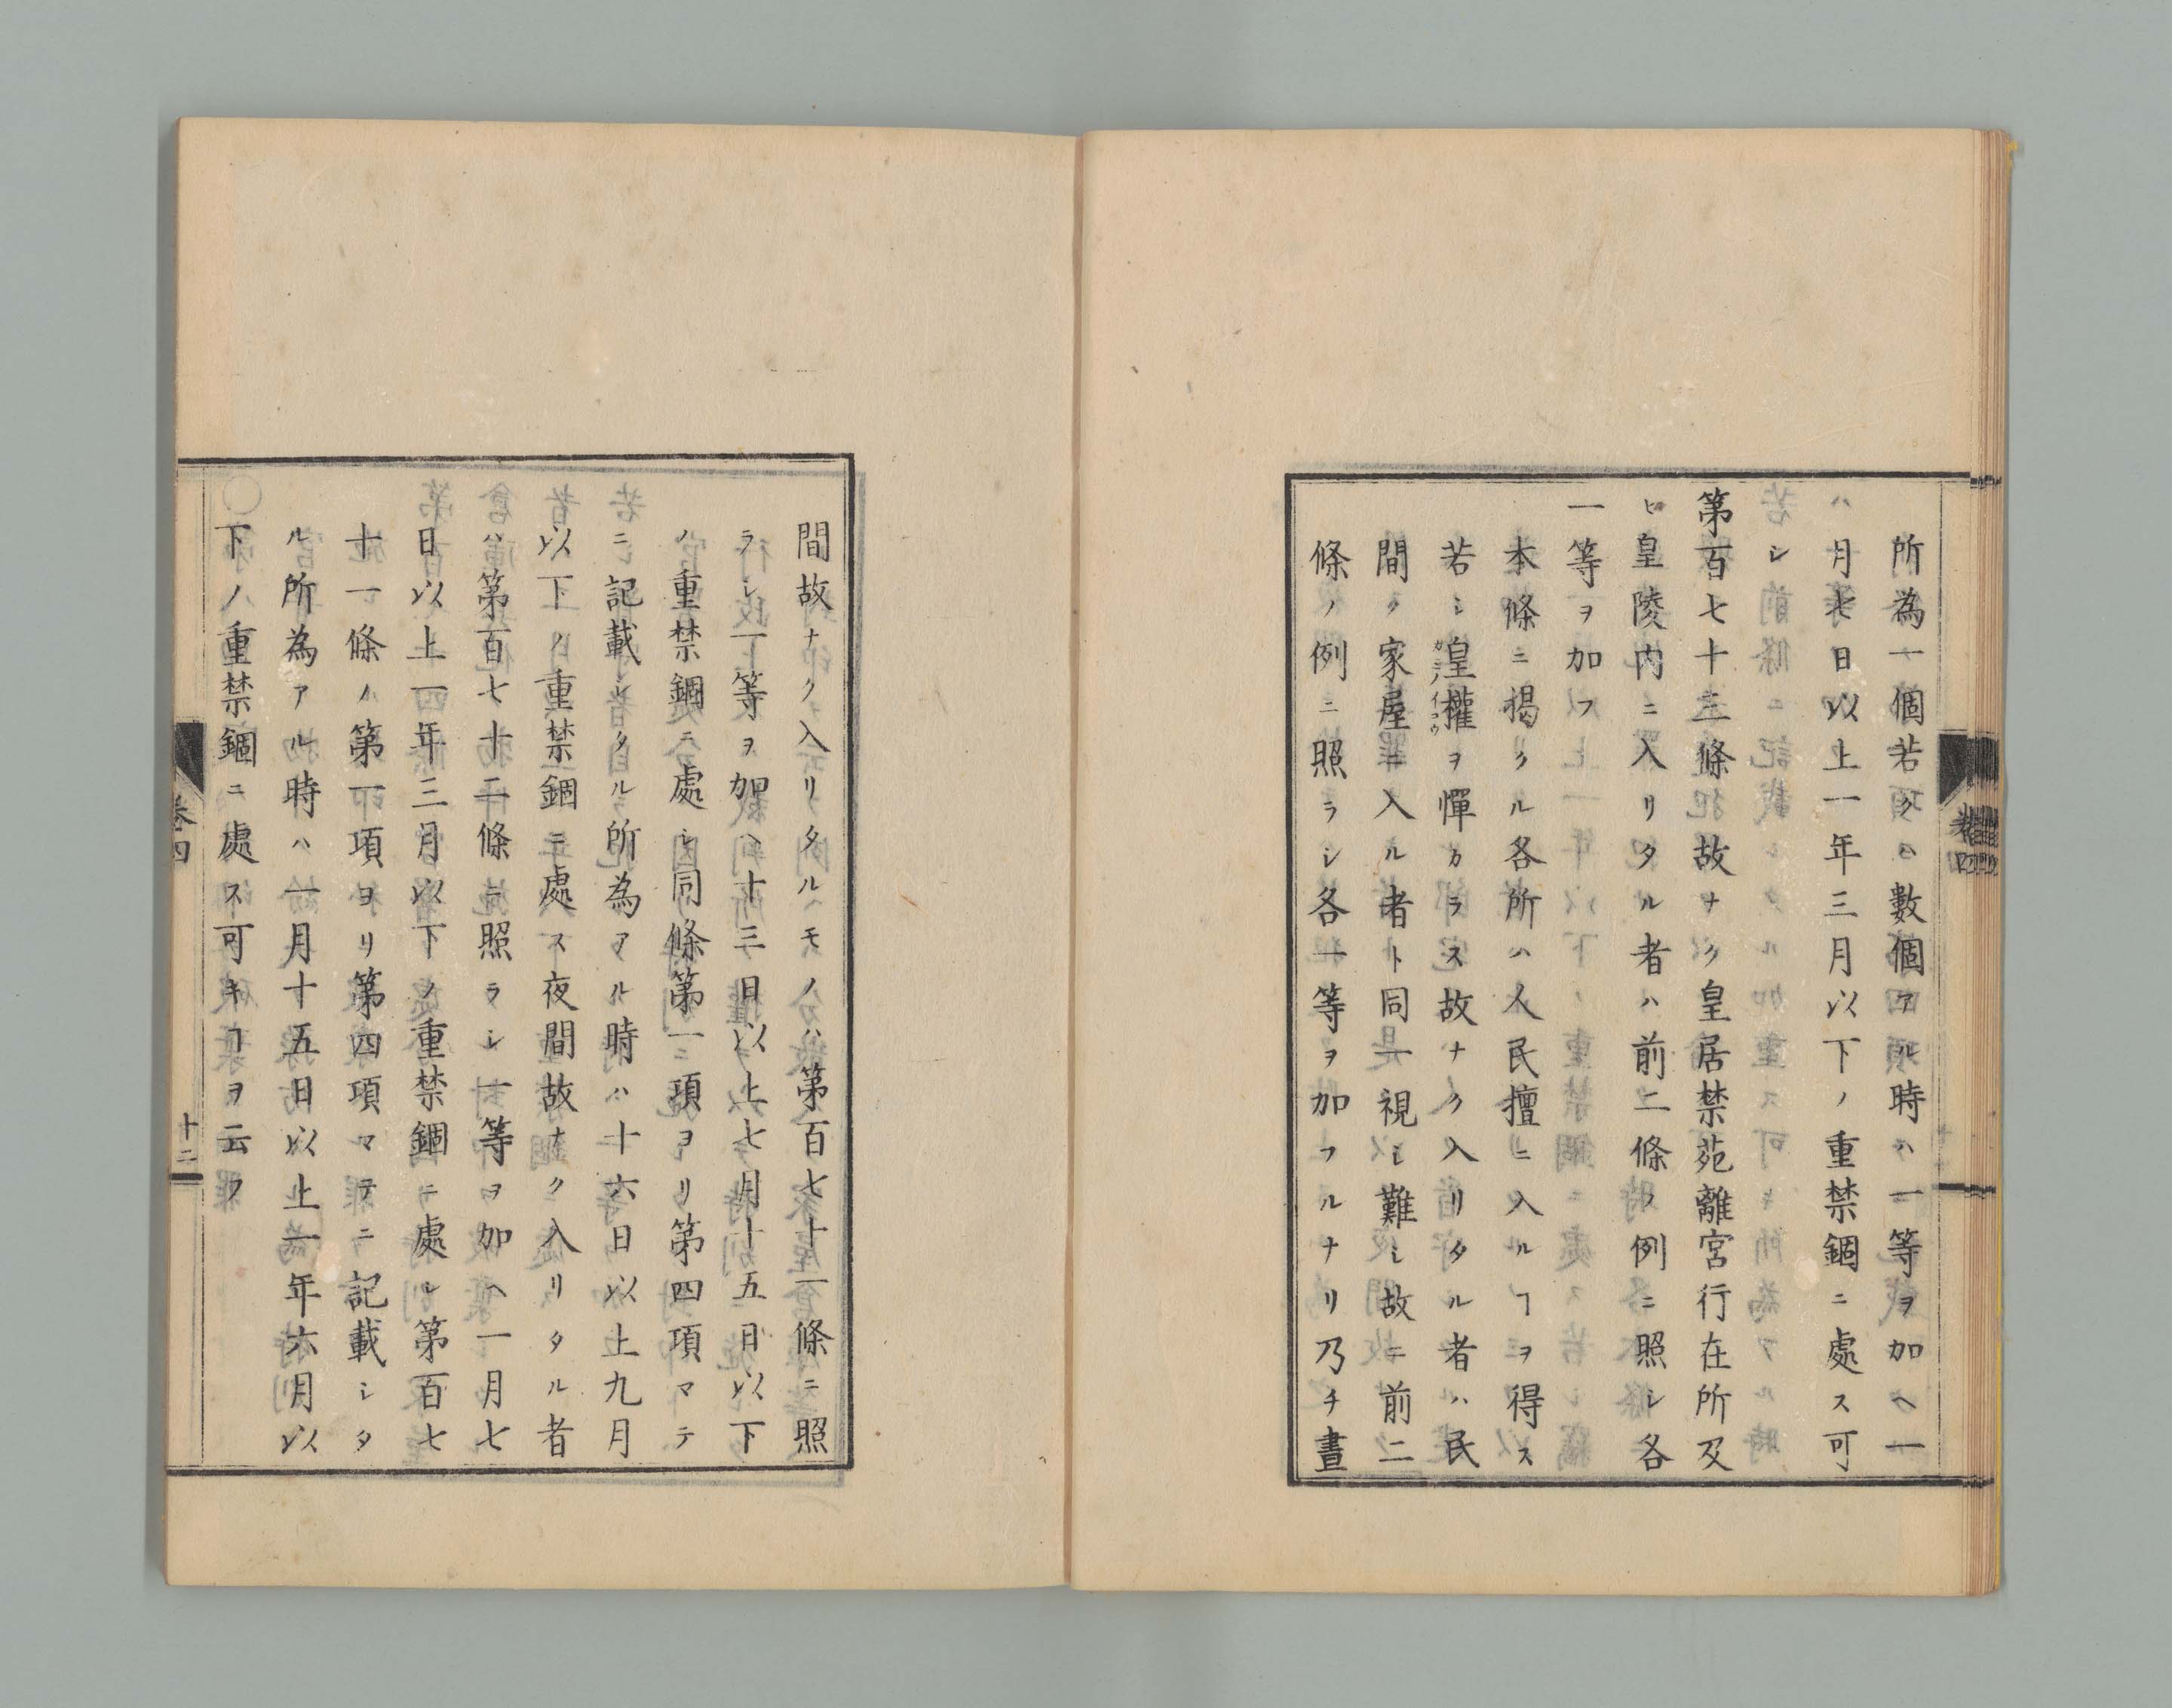 所為一個若クハ數個アル時ハ一等ヲ加ヘ一
月七日以上一年三月以下ノ重禁錮ニ處ス可
シ
第百七十三條故ナク皇居禁苑離宮行在所及
ヒ皇陵内ニ入リタル者ハ前二條ノ例ニ照シ各
一等ヲ加フ
本條ニ揭クル各所ハ人民擅ニ入ルヿヲ得ス
若シ皇權ヲ憚カラス故ナク入リタル者ハ民
間ノ家屋ニ入ル者ト同一視シ難シ故ニ前二
條ノ例ニ照ラシ各一等ヲ加フルナリ乃チ晝
卷四
間故ナク入リタルモノハ第百七十一條ニ照
ラシ一等ヲ加ヘ十三日以上七月十五日以下
ノ重禁錮ニ處シ同條第一項ヨリ第四項マテ
ニ記載シタル所為アル時ハ十六日以上九月
以下ノ重禁錮ニ處ス夜間故ナク入リタル者
ハ第百七十二條ニ照ラシ一等ヲ加ヘ一月七
日以上一年三月以下ノ重禁錮ニ處シ第百七
十一條ノ第一項ヨリ第四項マテニ記載シタ
ル所為アル時ハ一月十五日以上一年六月以
下ノ重禁錮ニ處ス可キヿヲ云フ
卷四
十二